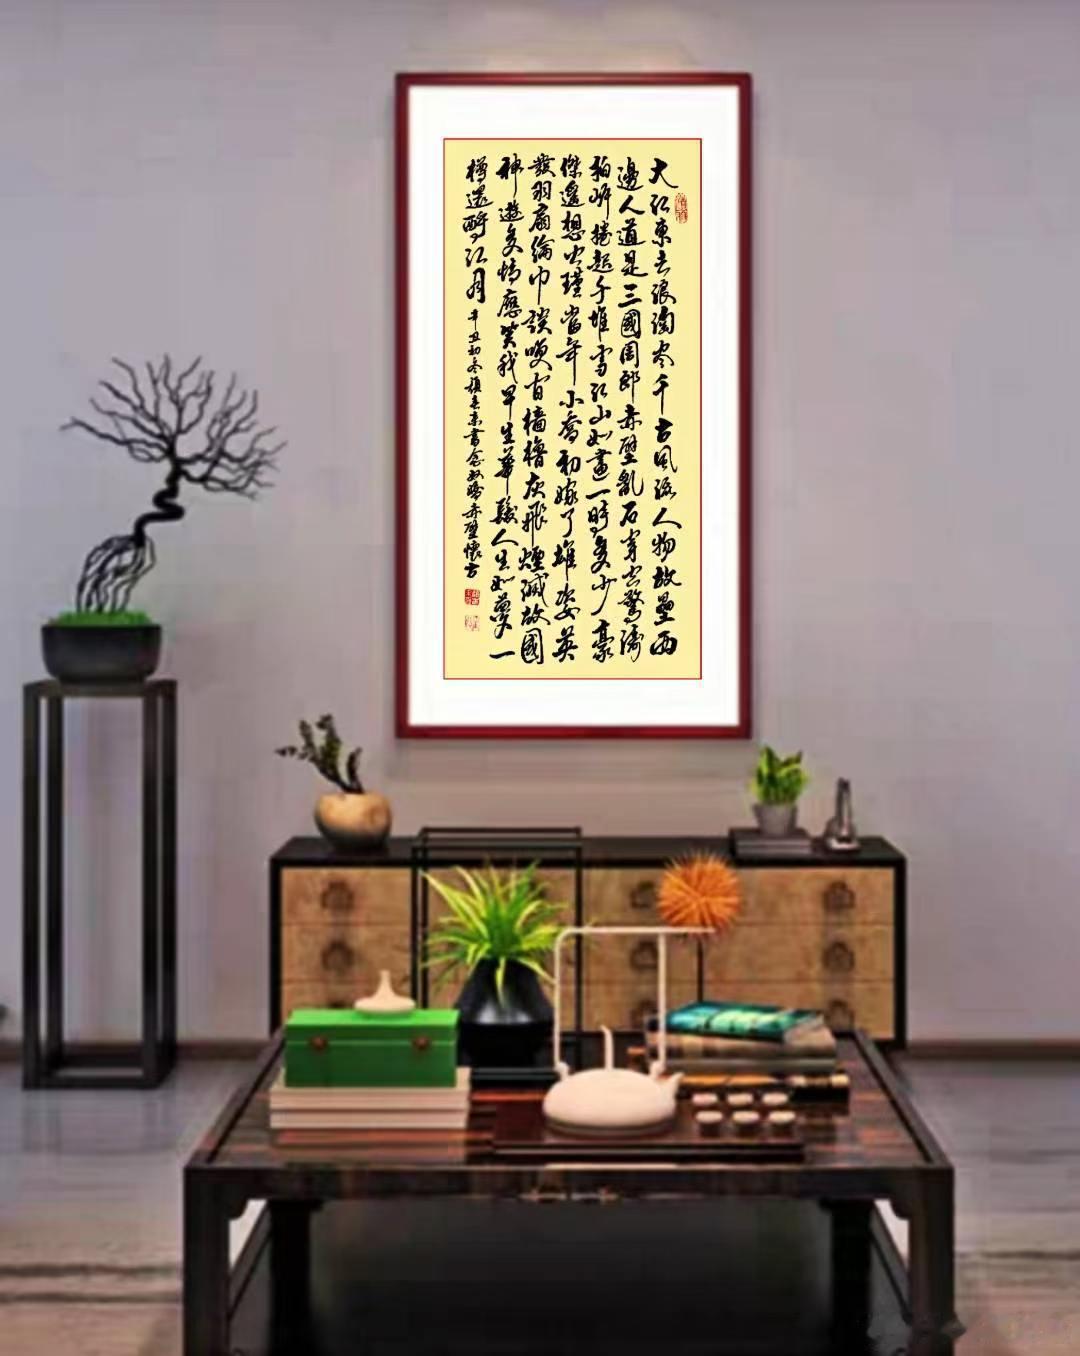 大江東去浪淘尽千古風流人物故壘西
邊人道是三國周郎赤壁亂石穿空驚濤
拍岸捲起千堆雪江山如畫一時多少豪
傑遙想公瑾當年小喬初嫁了雄姿英
發羽扇綸巾談咲間檣櫓灰飛煙滅故國
神遊多情應笑我早生華髮人生如夢一
樽還酹江月 辛丑初冬書念奴嬌赤壁懷古